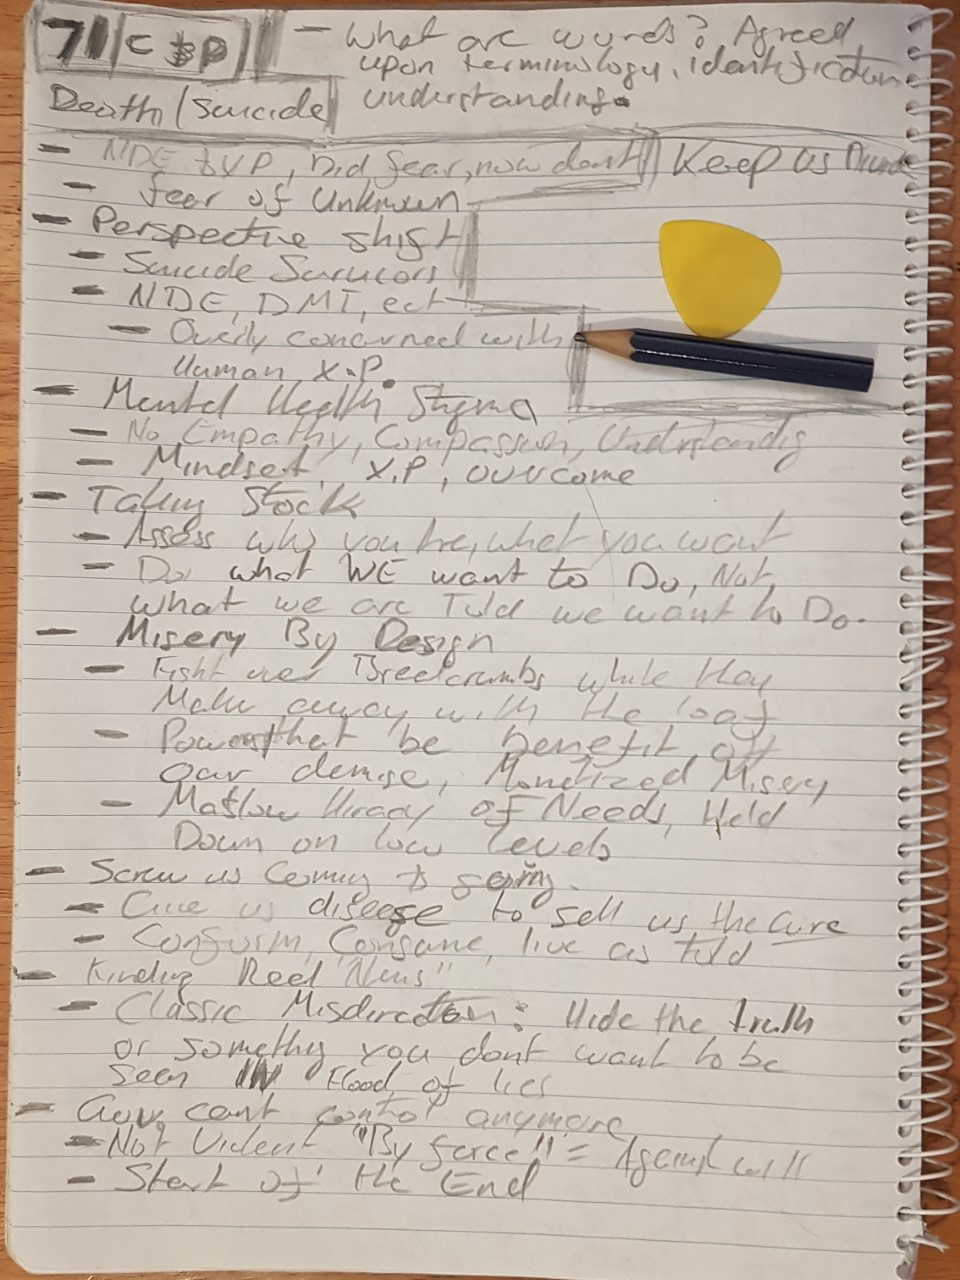 71 C & P
- What are words? Agreed
upon terminology, identification
understanding.
Death/Suicide
- NDE XP, Did fear, now dont
Keep us Divided
- fear of Unknown
- Perspective shift
- Suicide Survivors
- NDE, DMT, ect
- Overly concerned with
Human X.P.
- Mental Health Stigma
- No Empathy, Compassion, Understandig
- Mindset, X.P, overcome
- Taking Stock
- Assess why you're, what you want
- Do what WE want to Do, Not
what we are Told we want to Do.
- Misery By Design
- Fight over Breadcrumbs while they
Make away with the loaf
- Powers that be benefit off
our demise, Monetized Misery
- Maslow of Needs, Held
Down on low levels
- Screw us Coming & going.
- Give us disease to sell us the cure
- Conform, Consume, live as told
- Reel "News"
- Classic Misdirection: Hide the truth
or somethig you dont want to be
seen IN Flood of lies
- Gov. cant control anymore
- Not Violent "By force" = Against will
- Start of the End